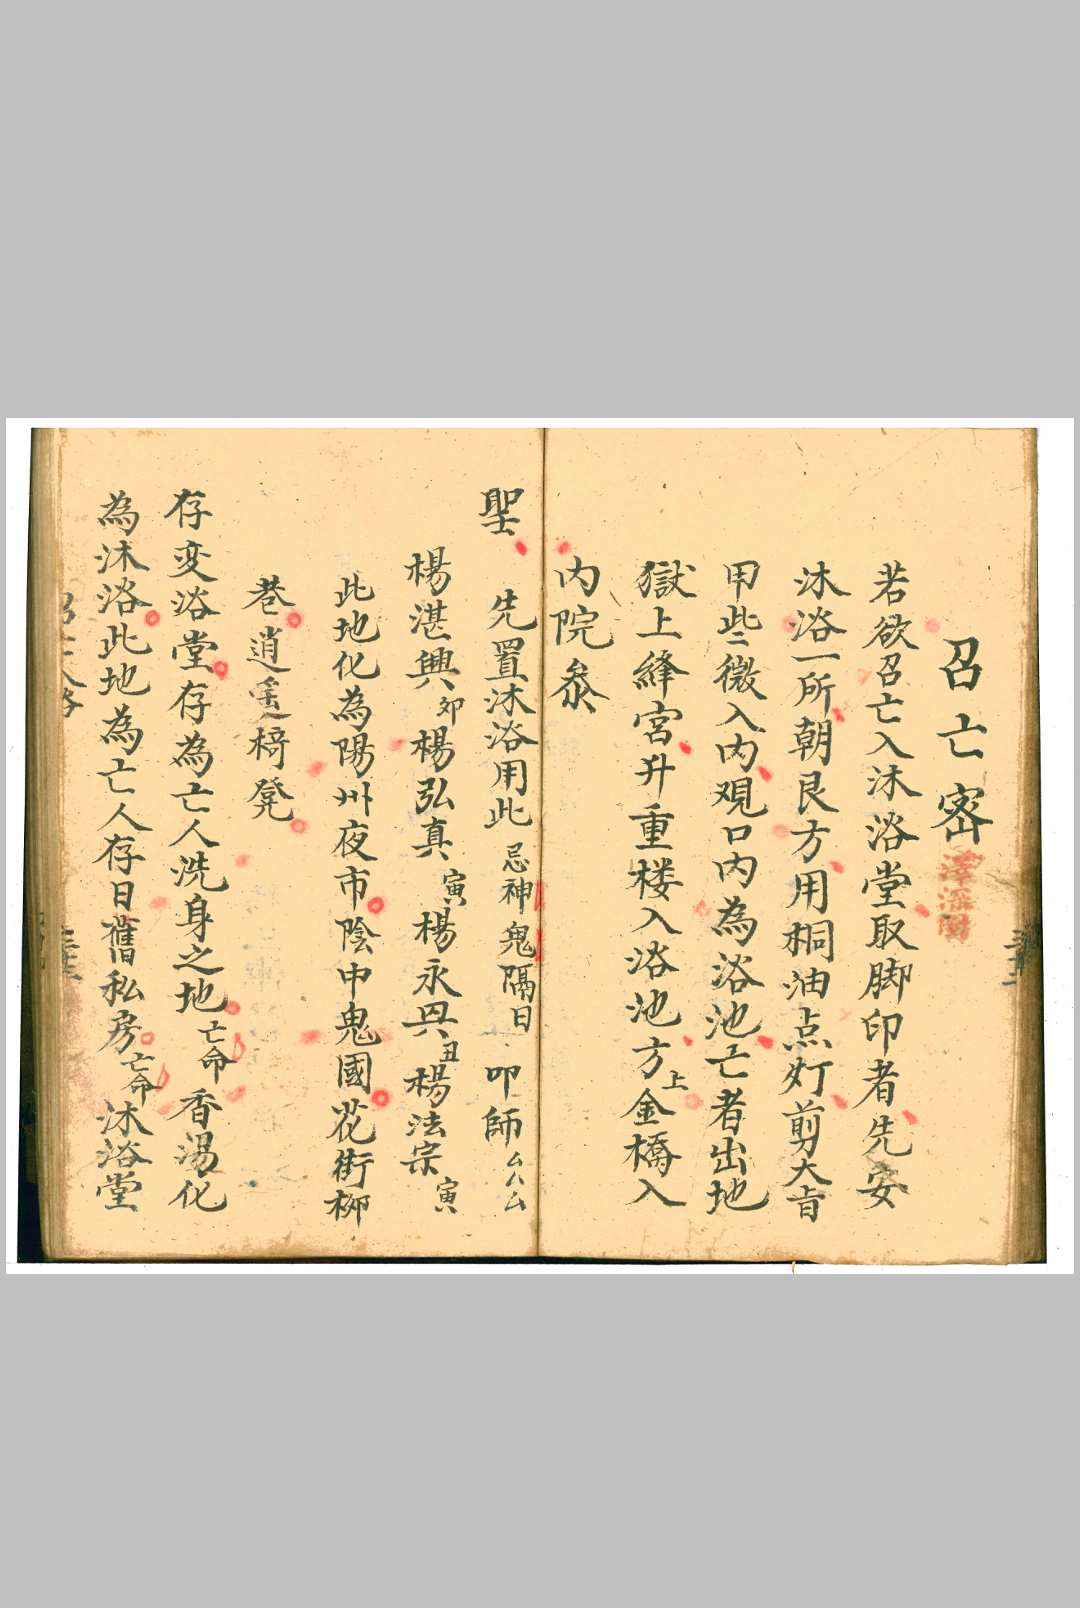 召亡密
若欲召亡入沐浴堂取脚印者先安
沐浴一所朝艮方用桐油点灯剪大旨
甲些㆓微入内观口内為浴池亡者出地
獄上絳宮升重楼入浴池方上金橋入
内院参
聖　先置沐浴用此忌神鬼隔日叩師厶厶厶
楊湛興卯楊弘真寅楊永兴丑楊法宗寅
此地化為陽州夜市陰中鬼國花街柳
巷逍遥椅凳
存变浴堂存為亡人洗身之地亡命香湯化
為沐浴此地為亡人存日舊私房亡命沐浴堂